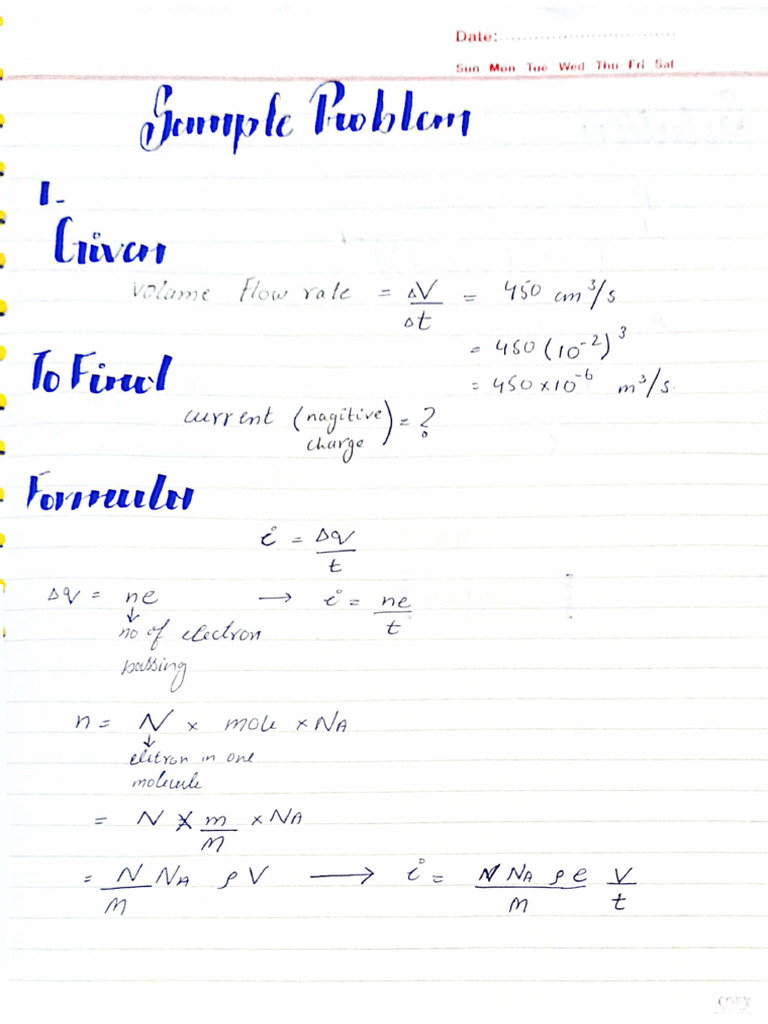 Date:
Sun Mon Tue Wed Thu Fri Sat
Sample Problem
1.
Given
Volume Flow rate = ΔV/Δt = 450 cm³/s
= 450 (10⁻²)³
= 450×10⁻⁶ m³/s.
To Find
current (nagitive charge) = ?
Formula
i = Δq/t
Δq = ne → i = ne/t
↓
no of electron
passing
n = N × mole × NA
↓
eletron in one
molecule
= N × m/M × NA
= N/M NA ρV → i = N NA ρe/M V/t
COPY